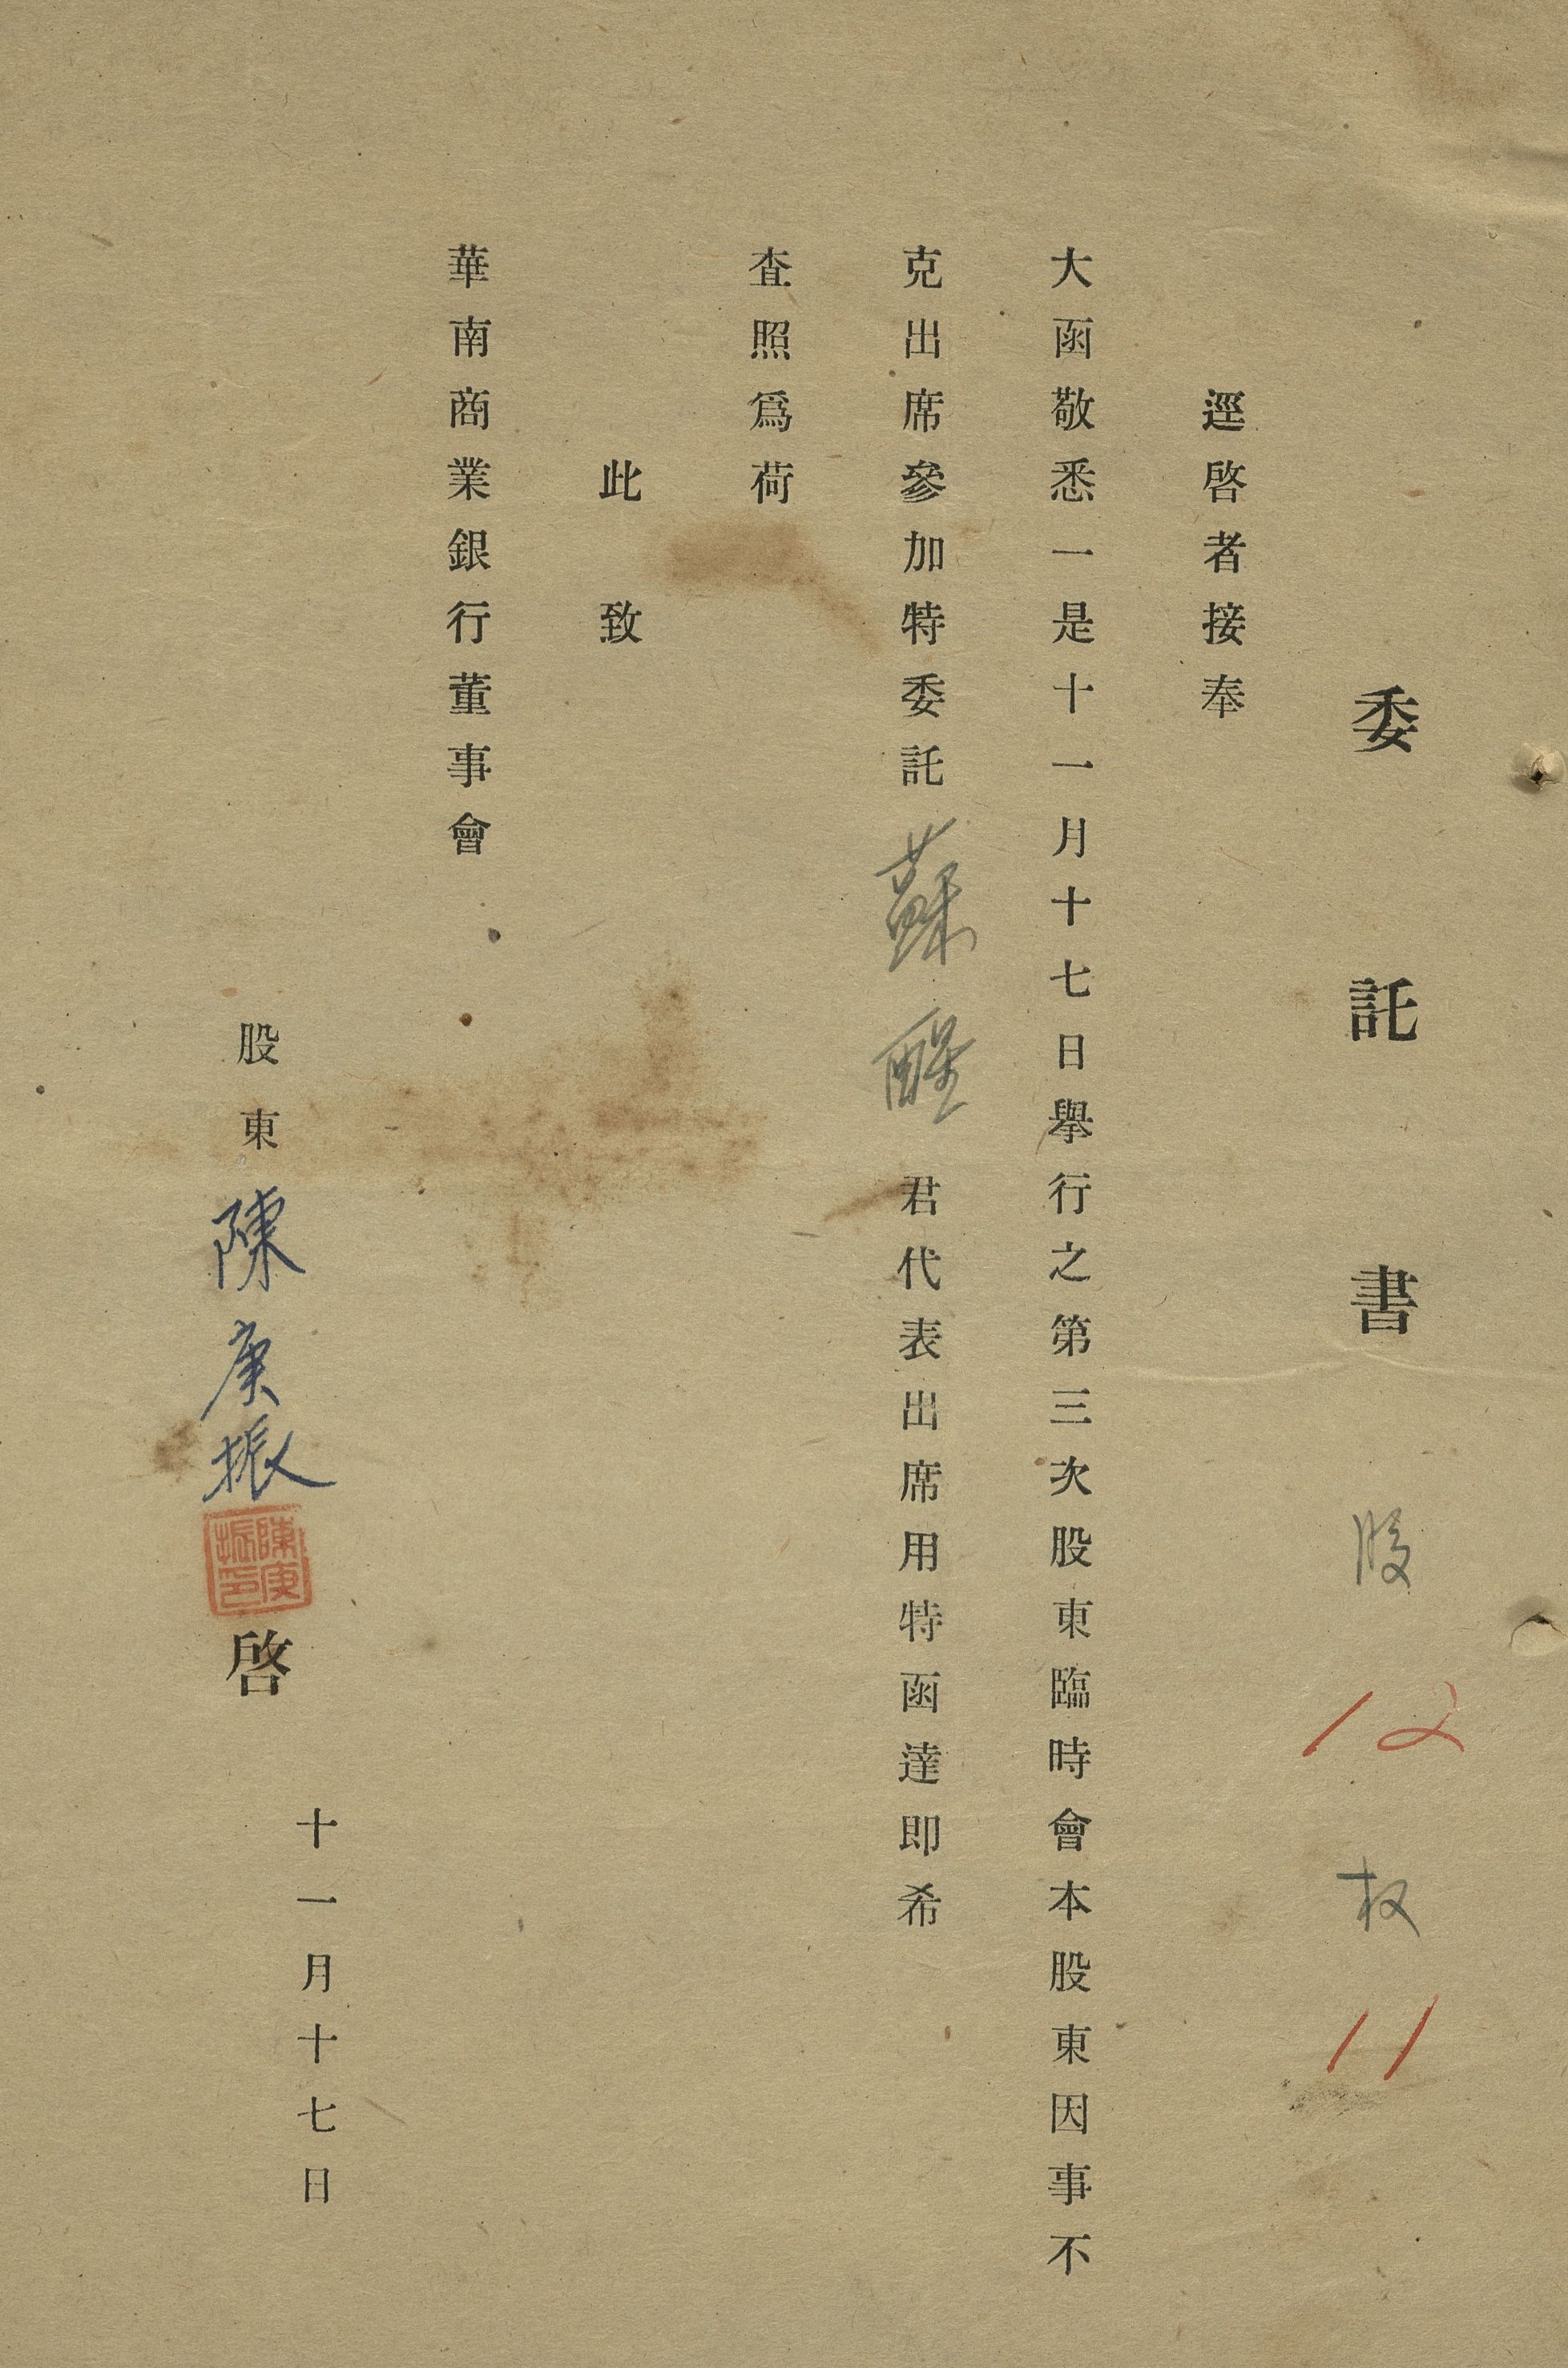 委託書 股 12 权 11
逕啓者接奉
大函敬悉一是十一月十七日舉行之第三次股東臨時會本股東因事不
克出席參加特委託 蘇醒 君代表出席用特函達即希
査照爲荷
此致
華南商業銀行董事會
股東 陳庚振 啓
陳庚振印
十一月十七日